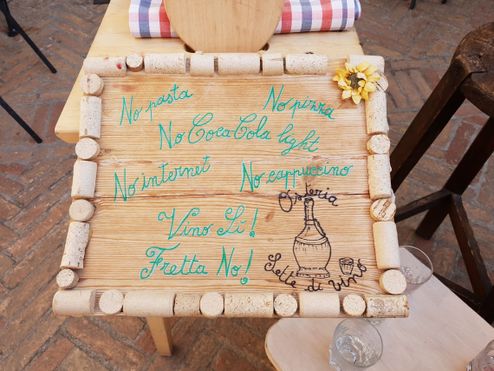 No pasta No pizza
No CocaCola light
No internet No cappuccino
Osteria
Vino Si!
Fretta No!
Sette di vino